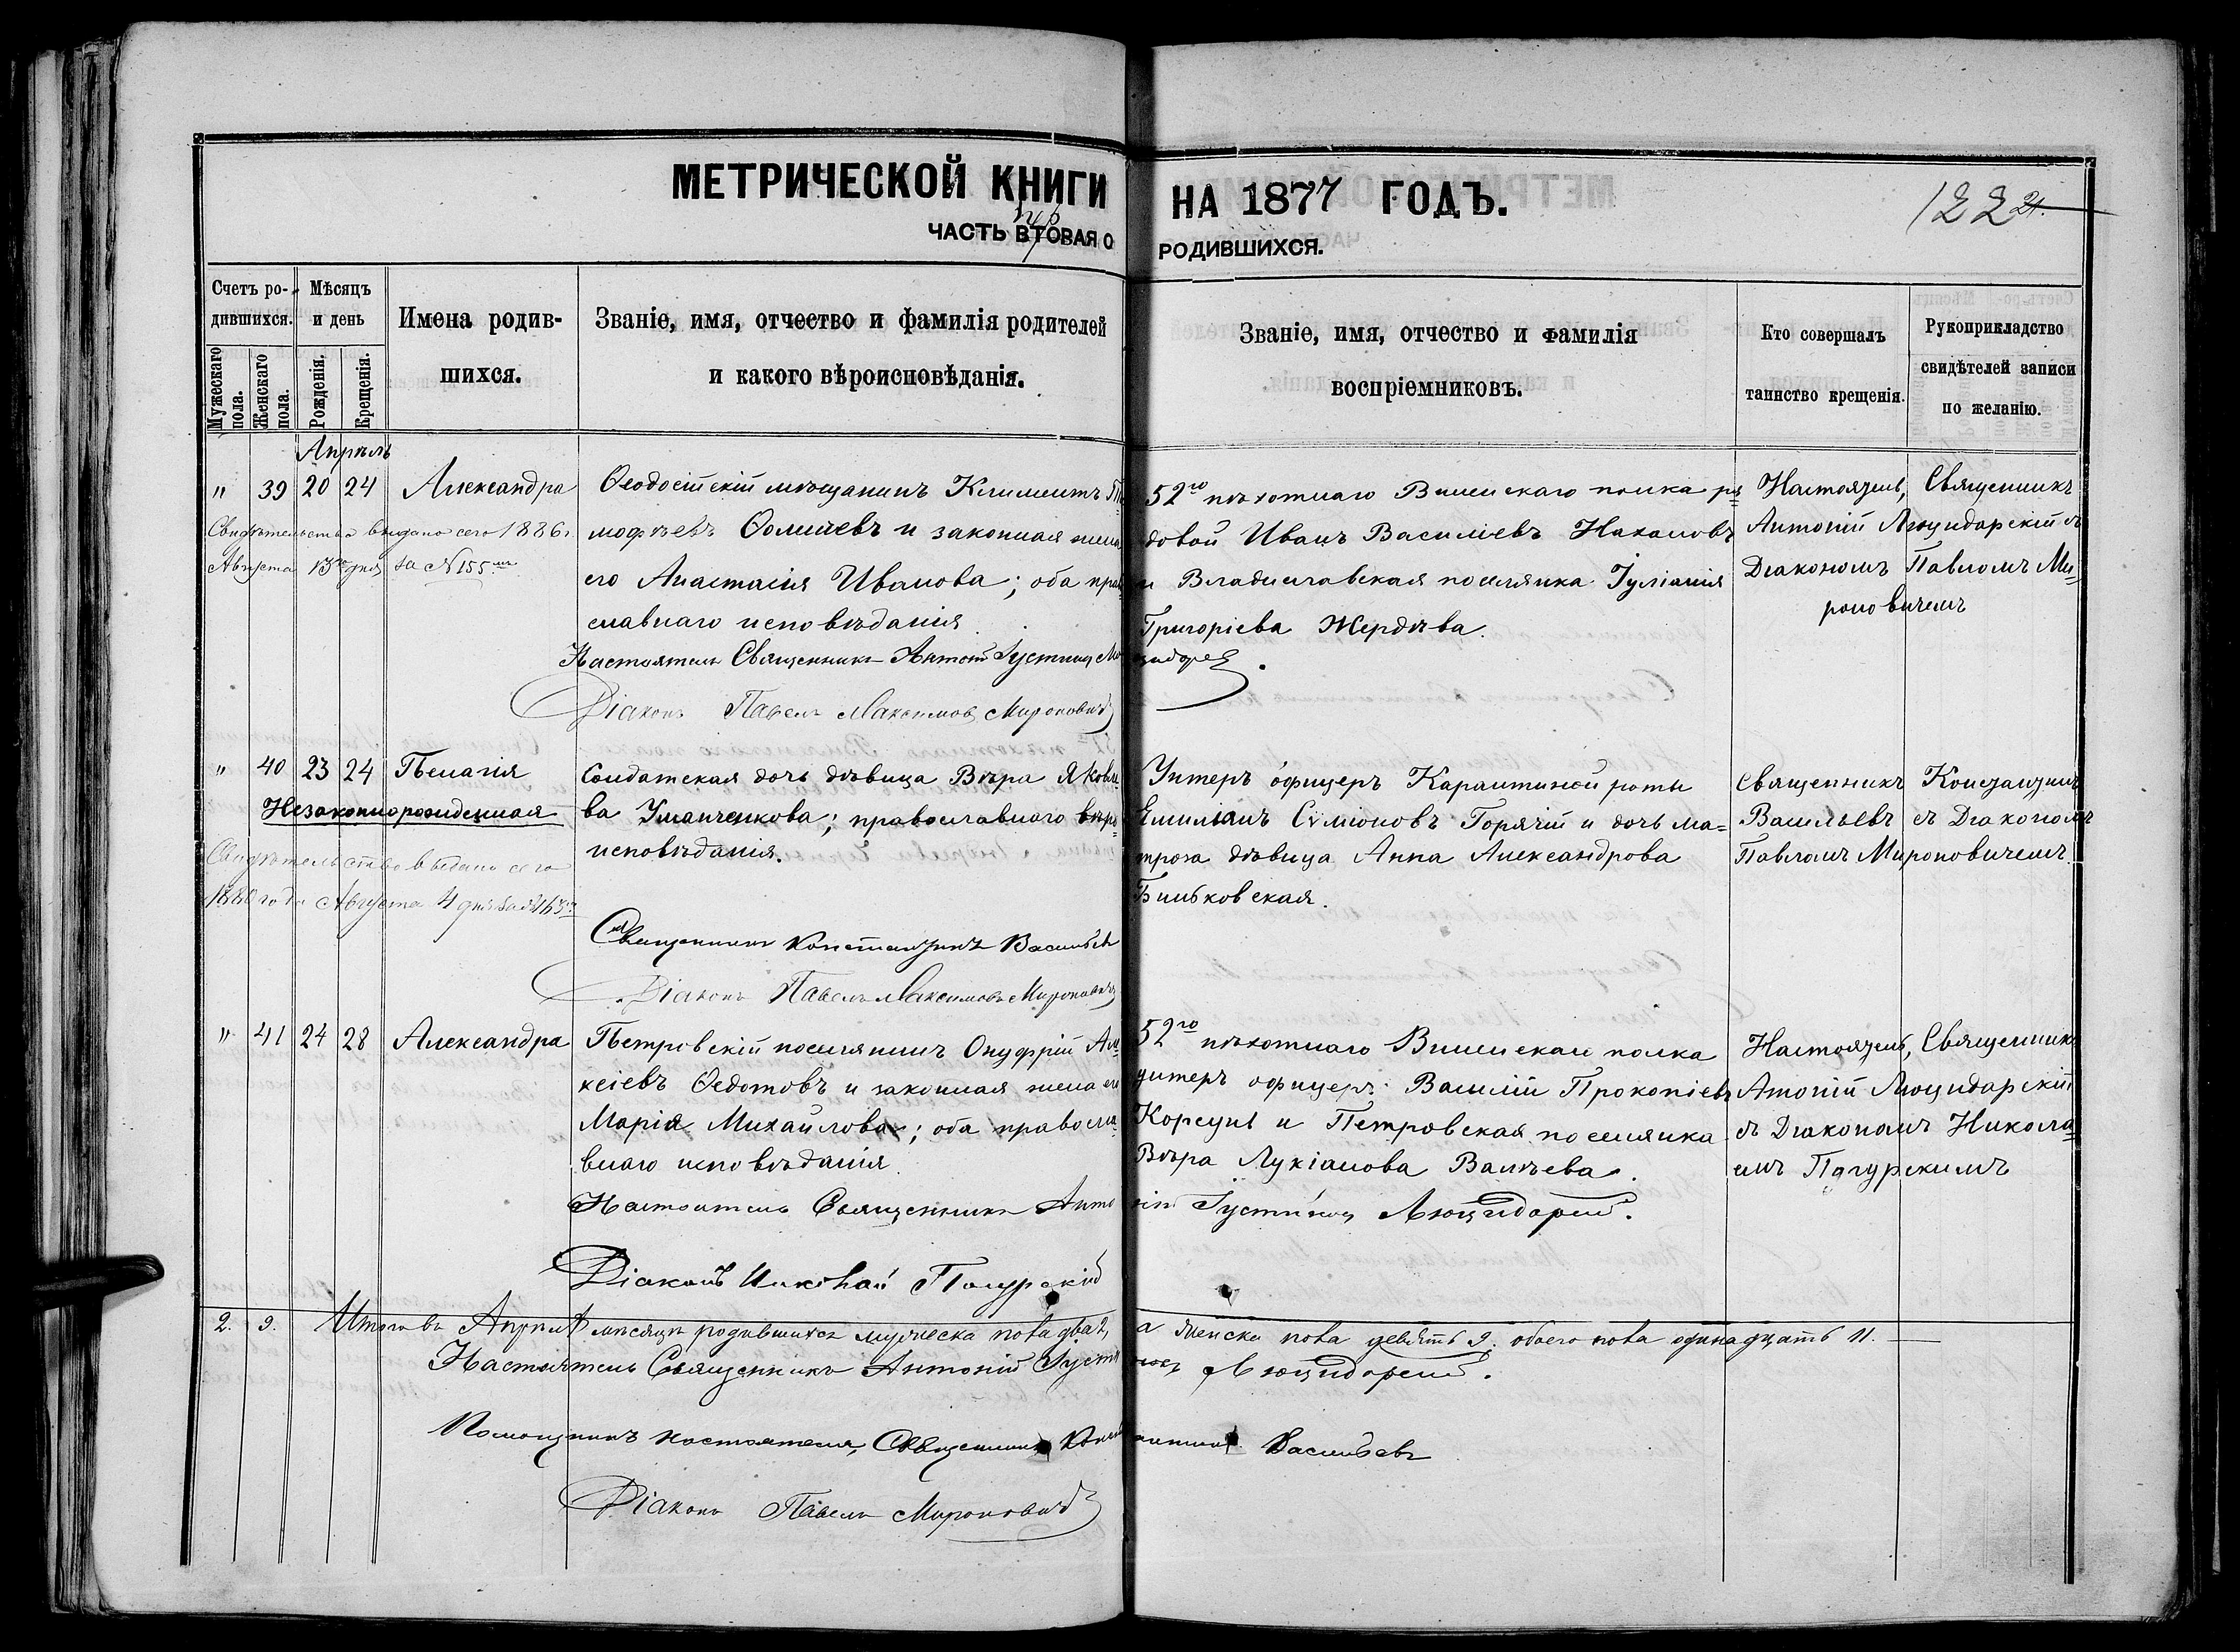 МЕТРИЧЕСКОЙ КНИГИ НА 1877 ГОДЪ.
122 21.
ЧАСТЬ ВТОРАЯ О РОДИВШИХСЯ.
Счетъ родившихся.
Мужескаго пола.
Женскаго пола.
Мѣсяцъ и день
Рожденія.
Крещенія.
Имена родив-
шихся.
Званіе, имя, отчество и фамилія родителей
и какого вѣроисповѣданія.
Званіе, имя, отчество и фамилія
воспріемниковъ.
Кто совершалъ
таинство крещенія.
Рукоприкладство
свидѣтелей записи
по желанію.
Апрѣль
" 39 20 24 Александра
Свидѣтельство выдано сего 1886 г.
Августа 13го дня за № 155
Ѳеодосійскій мѣщанинъ Климентъ Ти-
мофѣевъ Ѳомичевъ и законная жена
его Анастасія Иванова; оба право-
славнаго исповѣданія
52го пѣхотнаго Виленскаго полка ря-
довой Иванъ Василіевъ Нахановъ
и Владиславская поселянка Іуліанія
Григоріева Жердѣва.
Настоятель, Священникъ
Антоній Люцидарскій съ
Діакономъ Павломъ Ми-
роновичемъ
Настоятель Священникъ Антоній Іустиновъ
Діаконъ Павелъ Максимовъ Мироновичъ
" 40 23 24 Пелагія
Незаконнорожденная
Свидѣтельство выдано сего
1880 года Августа 4 дня за №
Солдатская дочь дѣвица Вѣра Яковле-
ва Уманченкова; православнаго вѣро-
исповѣданія.
Унтеръ офицеръ Карантинной роты
Емиліанъ Сѵміоновъ Горячій и дочь ма-
троза дѣвица Анна Александрова
Бильковская.
Священникъ Констанѵинъ
Васильевъ съ Діакономъ
Павломъ Мироновичемъ.
Священникъ Константинъ Васильевъ
Діаконъ Павелъ Максимовъ Мироновичъ
" 41 24 28 Александра
Петровскій поселянинъ Онуфрій Але-
ксіевъ Ѳедотовъ и законная жена его
Марія Михайлова; оба правосла-
внаго исповѣданія.
52го пѣхотнаго Виленскаго полка
унтеръ офицеръ Василій Прокопіевъ
Корсунъ и Петровская поселянка
Вѣра Лукіанова Валѣева.
Настоятель, Священникъ
Антоній Люцидарскій
съ Діакономъ Никола-
емъ Пагурскимъ
Настоятель Священникъ Антоній Іустиновъ Люцидарскій.
Діаконъ Николай Пагурскій
2. 9. Итого въ Апрѣлѣ мѣсяцѣ родившихся мужеска пола два 2, а женска пола девять 9. обоего пола одинадцать 11.
Настоятель Священникъ Антоній Іустиновъ Люцидарскій.
Помощникъ настоятеля, Священникъ Константинъ Васильевъ
Діаконъ Павелъ Мироновичъ